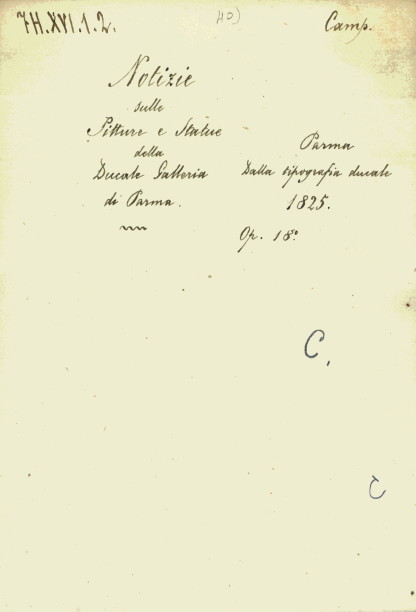 7H.XVI.1.2.
40)
Camp.
Notizie
sulle
Pitture e Statue
della
Ducale Galleria
di Parma.
Parma
Dalla tipografia ducale
1825.
Op. 18°
C.
C